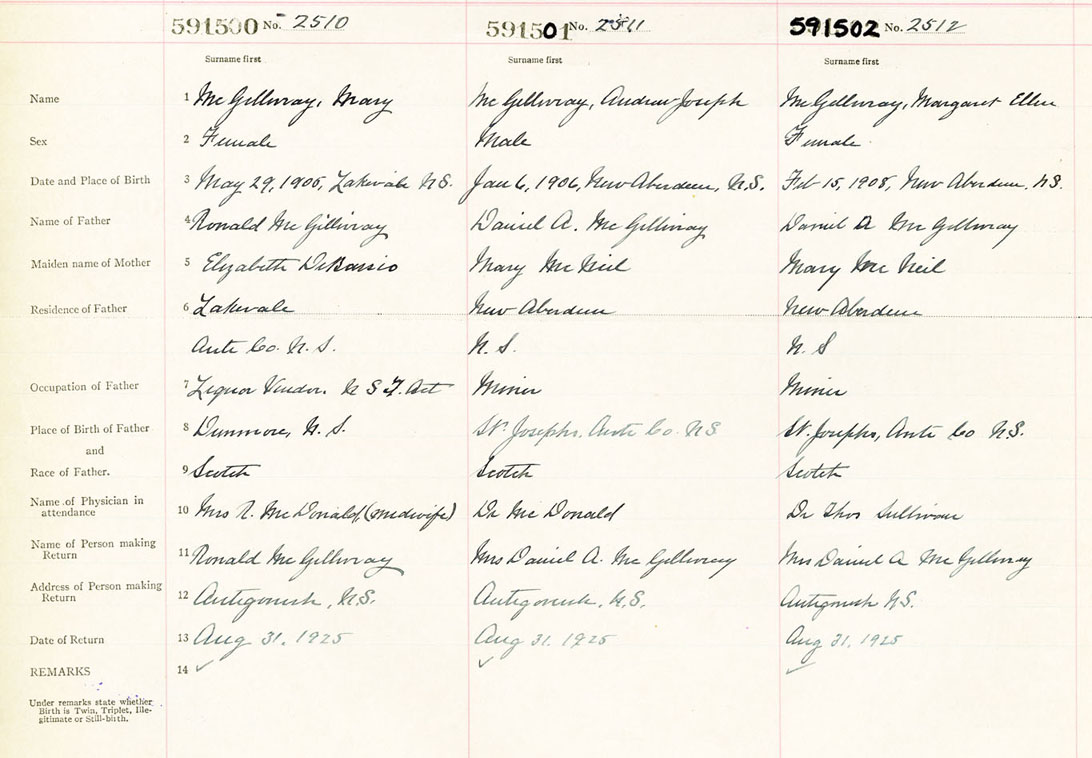 591500 No. 2510 591501 No. 2511 591502 No. 2512
Surname first Surname first Surname first
Name 1 McGillivray, Mary McGillivray, Andrew Joseph McGillivray, Margaret Ellen
Sex 2 Female Male Female
Date and Place of Birth 3 May 29, 1905, Lakevale N.S. Jan 6, 1906, New Aberdeen, N.S. Feb 15, 1908, New Aberdeen, N.S.
Name of Father 4 Ronald McGillivray Daniel A. McGillivray Daniel A McGillivray
Maiden name of Mother 5 Elizabeth Mary McNeil Mary McNeil
Residence of Father 6 Lakevale New Aberdeen New Aberdeen
Ante Co. N.S. N.S. N.S
Occupation of Father 7 Liquor Vendor. N S T. Act Miner Miner
Place of Birth of Father 8 Dunmore, N.S. St Josephs, Ante Co. N.S St. Josephs, Ante Co N.S.
and
Race of Father. 9 Scotch Scotch Scotch
Name of Physician in
attendance 10 Mrs R. McDonald, (midwife) Dr McDonald Dr Thos Sullivan
Name of Person making
Return 11 Ronald McGillivray Mrs Daniel A. McGillivray Mrs Daniel A McGillivray
Address of Person making
Return 12 Antigonish, N.S. Antigonish, N.S. Antigonish N.S.
Date of Return 13 Aug 31, 1925 Aug 31, 1925 Aug 31, 1925
REMARKS 14
Under remarks state whether
Birth is Twin, Triplet, Ille-
gitimate or Still-birth.